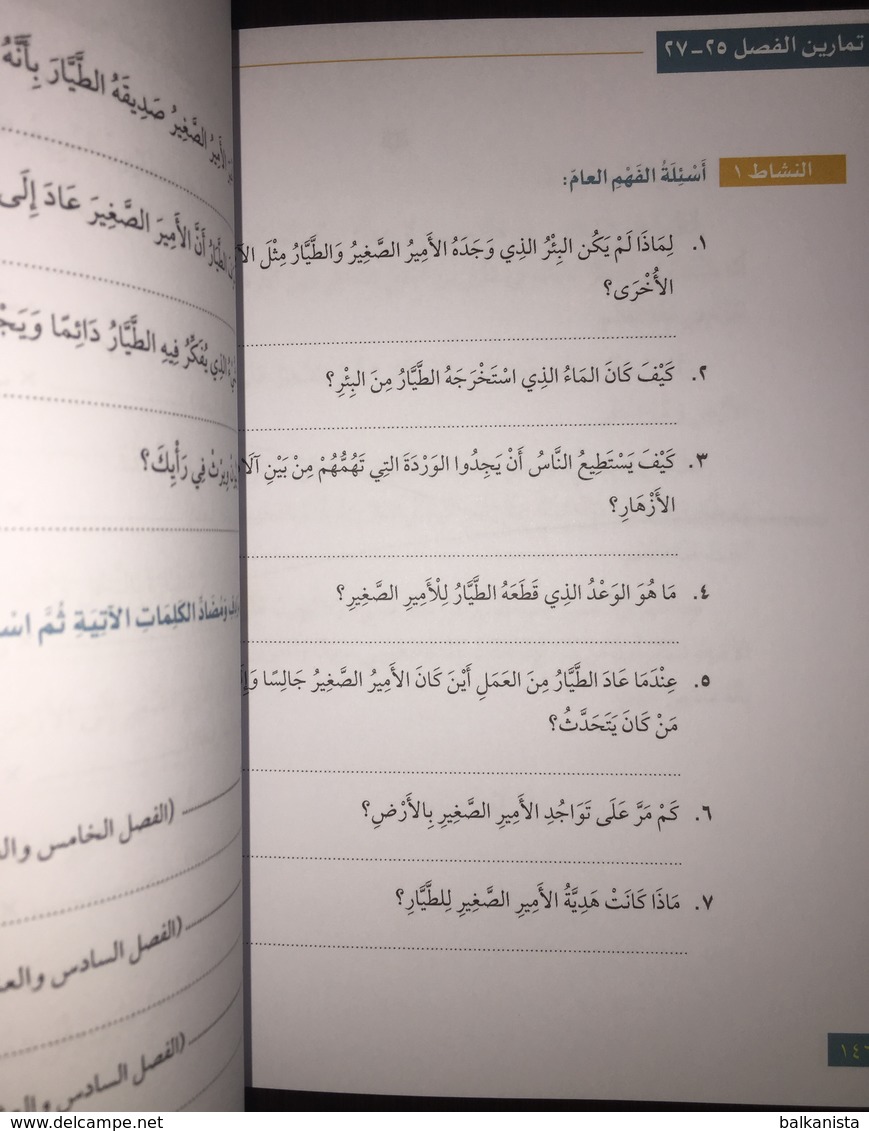 تمارين الفصل ٢٥-٢٧
النشاط ١ أَسْئِلَةُ الفَهْمِ العامَ:
١. لِمَاذَا لَمْ يَكُن البِئْرُ الذِي وَجَدَهُ الأَمِيرُ الصَّغِيرُ وَالطَّيَّارُ مِثْلَ
الأُخْرَى؟
٢. كَيْفَ كَانَ المَاءُ الذِي اسْتَخْرَجَهُ الطَّيَّارُ مِنَ البِئْرِ؟
٣. كَيْفَ يَسْتَطِيعُ النَّاسُ أَنْ يَجِدُوا الوَرْدَةَ التِي تَهُمُّهُمْ مِنْ بَيْنِ
الأَزْهَارِ؟
٤. مَا هُوَ الوَعْدُ الذِي قَطَعَهُ الطَّيَّارُ لِلْأَمِيرِ الصَّغِيرِ؟
٥. عِنْدَمَا عَادَ الطَّيَّارُ مِنَ العَمَلِ أَيْنَ كَانَ الأَمِيرُ الصَّغِيرُ جَالِسًا
مَنْ كَانَ يَتَحَدَّثُ؟
٦. كَمْ مَرَّ عَلَى تَوَاجُدِ الأَمِيرِ الصَّغِيرِ بِالأَرْضِ؟
٧. مَاذَا كَانَتْ هَدِيَّةُ الأَمِيرِ الصَّغِيرِ لِلطَّيَّارِ؟
الأَمِيرُ الصَّغِيرُ صَدِيقَهُ الطَّيَّارَ بِأَنَّهُ
الطَّيَّارُ أَنَّ الأَمِيرَ الصَّغِيرَ عَادَ إِلَى
الذِي يُفَكِّرُ فِيهِ الطَّيَّارُ دَائِمًا
فِي رَأْيِكَ؟
وَمُضَادَّ الكَلِمَاتِ الآتِيَةِ ثُمَّ
(الفصل الخامس
(الفصل السادس
(الفصل السادس
delcampe.net
balkanista